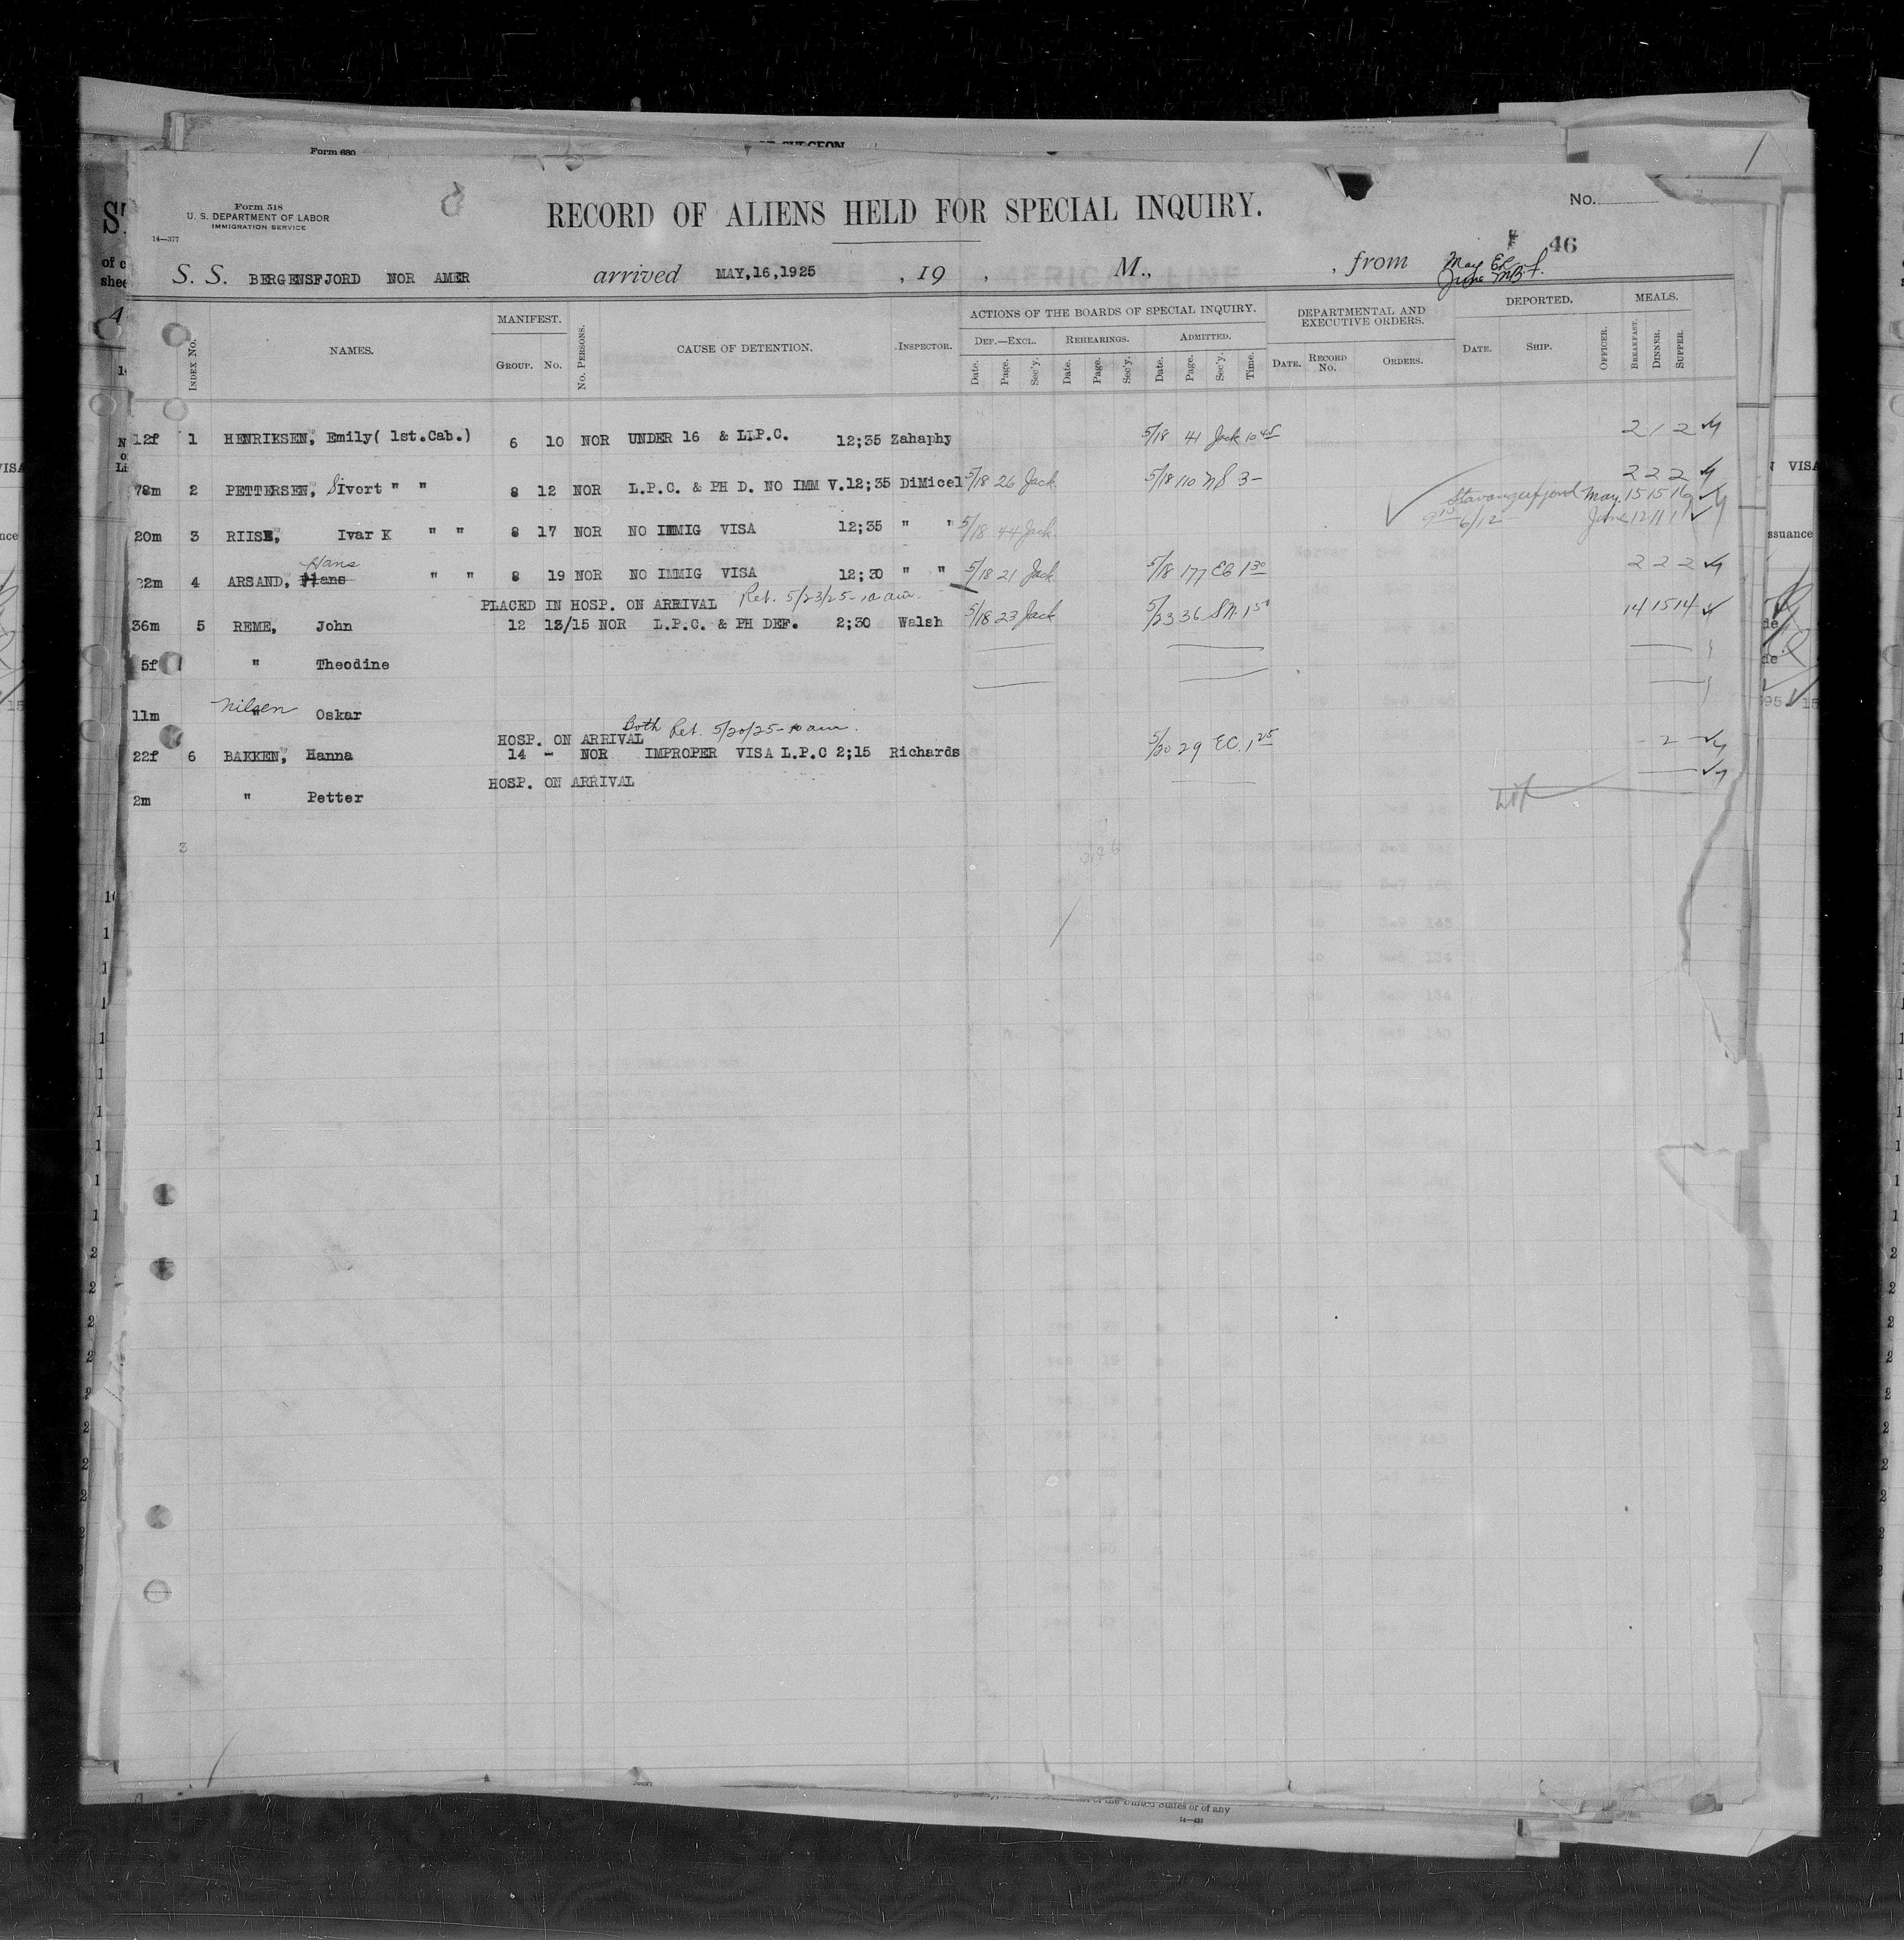 Form 680
Form 518
U. S. DEPARTMENT OF LABOR
IMMIGRATION SERVICE
14—377
RECORD OF ALIENS HELD FOR SPECIAL INQUIRY.
No.
46
S. S. BERGENSFJORD NOR AMER arrived MAY,16,1925 , 19 , M., , from
INDEX No.
NAMES.
MANIFEST.
GROUP. No.
No. PERSONS.
CAUSE OF DETENTION.
INSPECTOR.
ACTIONS OF THE BOARDS OF SPECIAL INQUIRY.
DEF.—EXCL. REHEARINGS. ADMITTED.
Date. Page. Sec'y. Date. Page. Sec'y. Date. Page. Sec'y. Time.
DEPARTMENTAL AND EXECUTIVE ORDERS.
DATE. RECORD No. ORDERS.
DEPORTED.
DATE. SHIP. OFFICER.
MEALS.
BREAKFAST. DINNER. SUPPER.
12f 1 HENRIKSEN, Emily( 1st.Cab.) 6 10 NOR UNDER 16 & LLP.C. 12;35 Zahaphy 5/18 41 Jack 10 45 2 1 2
78m 2 PETTERSEN, Sivort " " 8 12 NOR L.P.C. & PH D. NO IMM V.12;35 DiMicel 5/18 26 Jack 5/18 110 3- 2 2 2
Stavangerfjord May 15 15 16
20m 3 RIISE, Ivar K " " 8 17 NOR NO IMMIG VISA 12;35 " " 5/18 44 Jack 6/12 June 12 11 11
Hans
22m 4 ARSAND, Hans " " 8 19 NOR NO IMMIG VISA 12;30 " " 5/18 21 Jack 5/18 177 EG 1 30 2 2 2
PLACED IN HOSP. ON ARRIVAL Ret. 5/23/25-10 am.
36m 5 REME, John 12 13/15 NOR L.P.C. & PH DEF. 2;30 Walsh 5/18 23 Jack 5/23 36 14 15 14
5f " Theodine
11m Nilsen " Oskar
Both Ret. 5/20/25-10 am.
HOSP. ON ARRIVAL
22f 6 BAKKEN, Hanna 14 - NOR IMPROPER VISA L.P.C 2;15 Richards 5/20 29 EC. 1 25 - 2 -
HOSP. ON ARRIVAL
2m " Petter
3